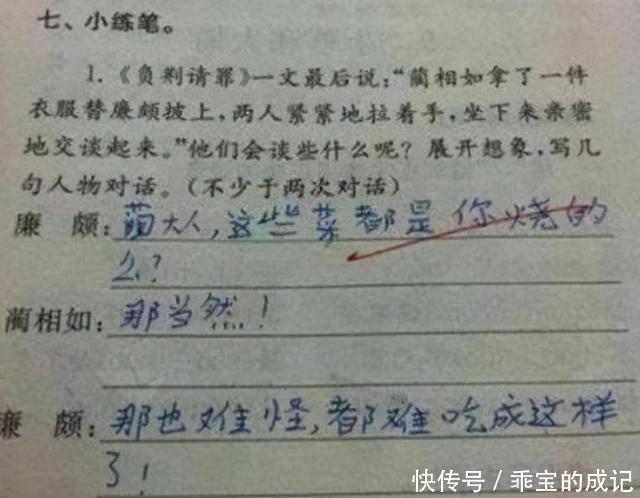 七、小练笔。
1.《负荆请罪》一文最后说:“蔺相如拿了一件
衣服替廉颇披上,两人紧紧地拉着手,坐下来亲密
地交谈起来。”他们会谈些什么呢?展开想象,写几
句人物对话。(不少于两次对话)
廉 颇:蔺大人,这些菜都是你烧的
么?
蔺相如:那当然!
廉 颇:那也难怪,都难吃成这样
了!
快传号/乖宝的成记